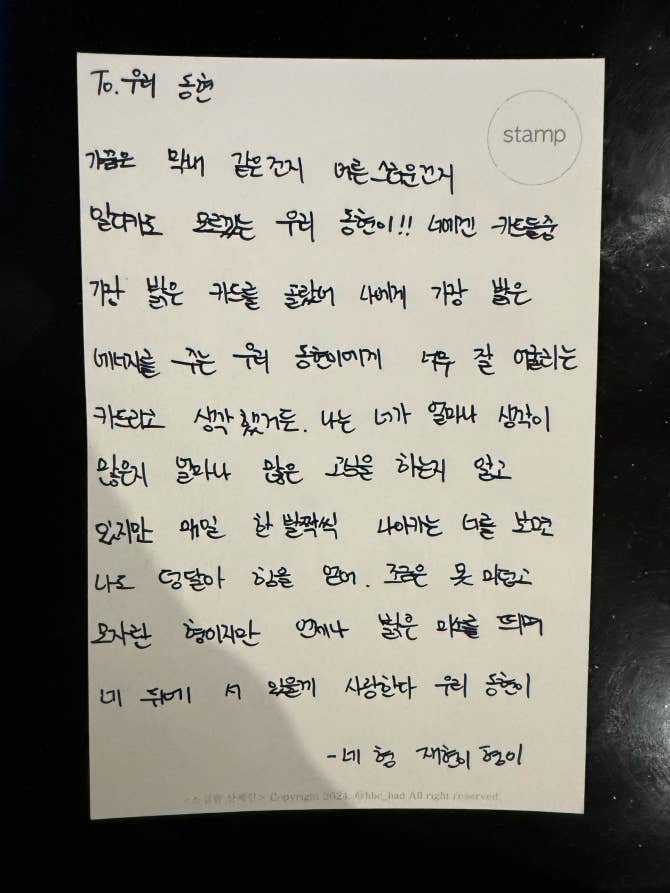 To. 우리 동현
stamp
가끔은 막내 같은건지 어른스러운건지
알다가도 모르겠는 우리 동현이!! 너에겐 카드들중
가장 밝은 카드를 골랐어 나에게 가장 밝은
에너지를 주는 우리 동현이에게 너무 잘 어울리는
카드라고 생각했거든. 나는 너가 얼마나 생각이
많은지 얼마나 많은 고민을 하는지 알고
있지만 매일 한 발짝씩 나아가는 너를 보면
나도 덩달아 힘을 얻어. 조금은 못 미덥고
모자란 형이지만 언제나 밝은 미소를 띄며
네 뒤에 서 있을게 사랑한다 우리 동현이
- 네 형 재현이 형이
Copyright 2024. All right reserved